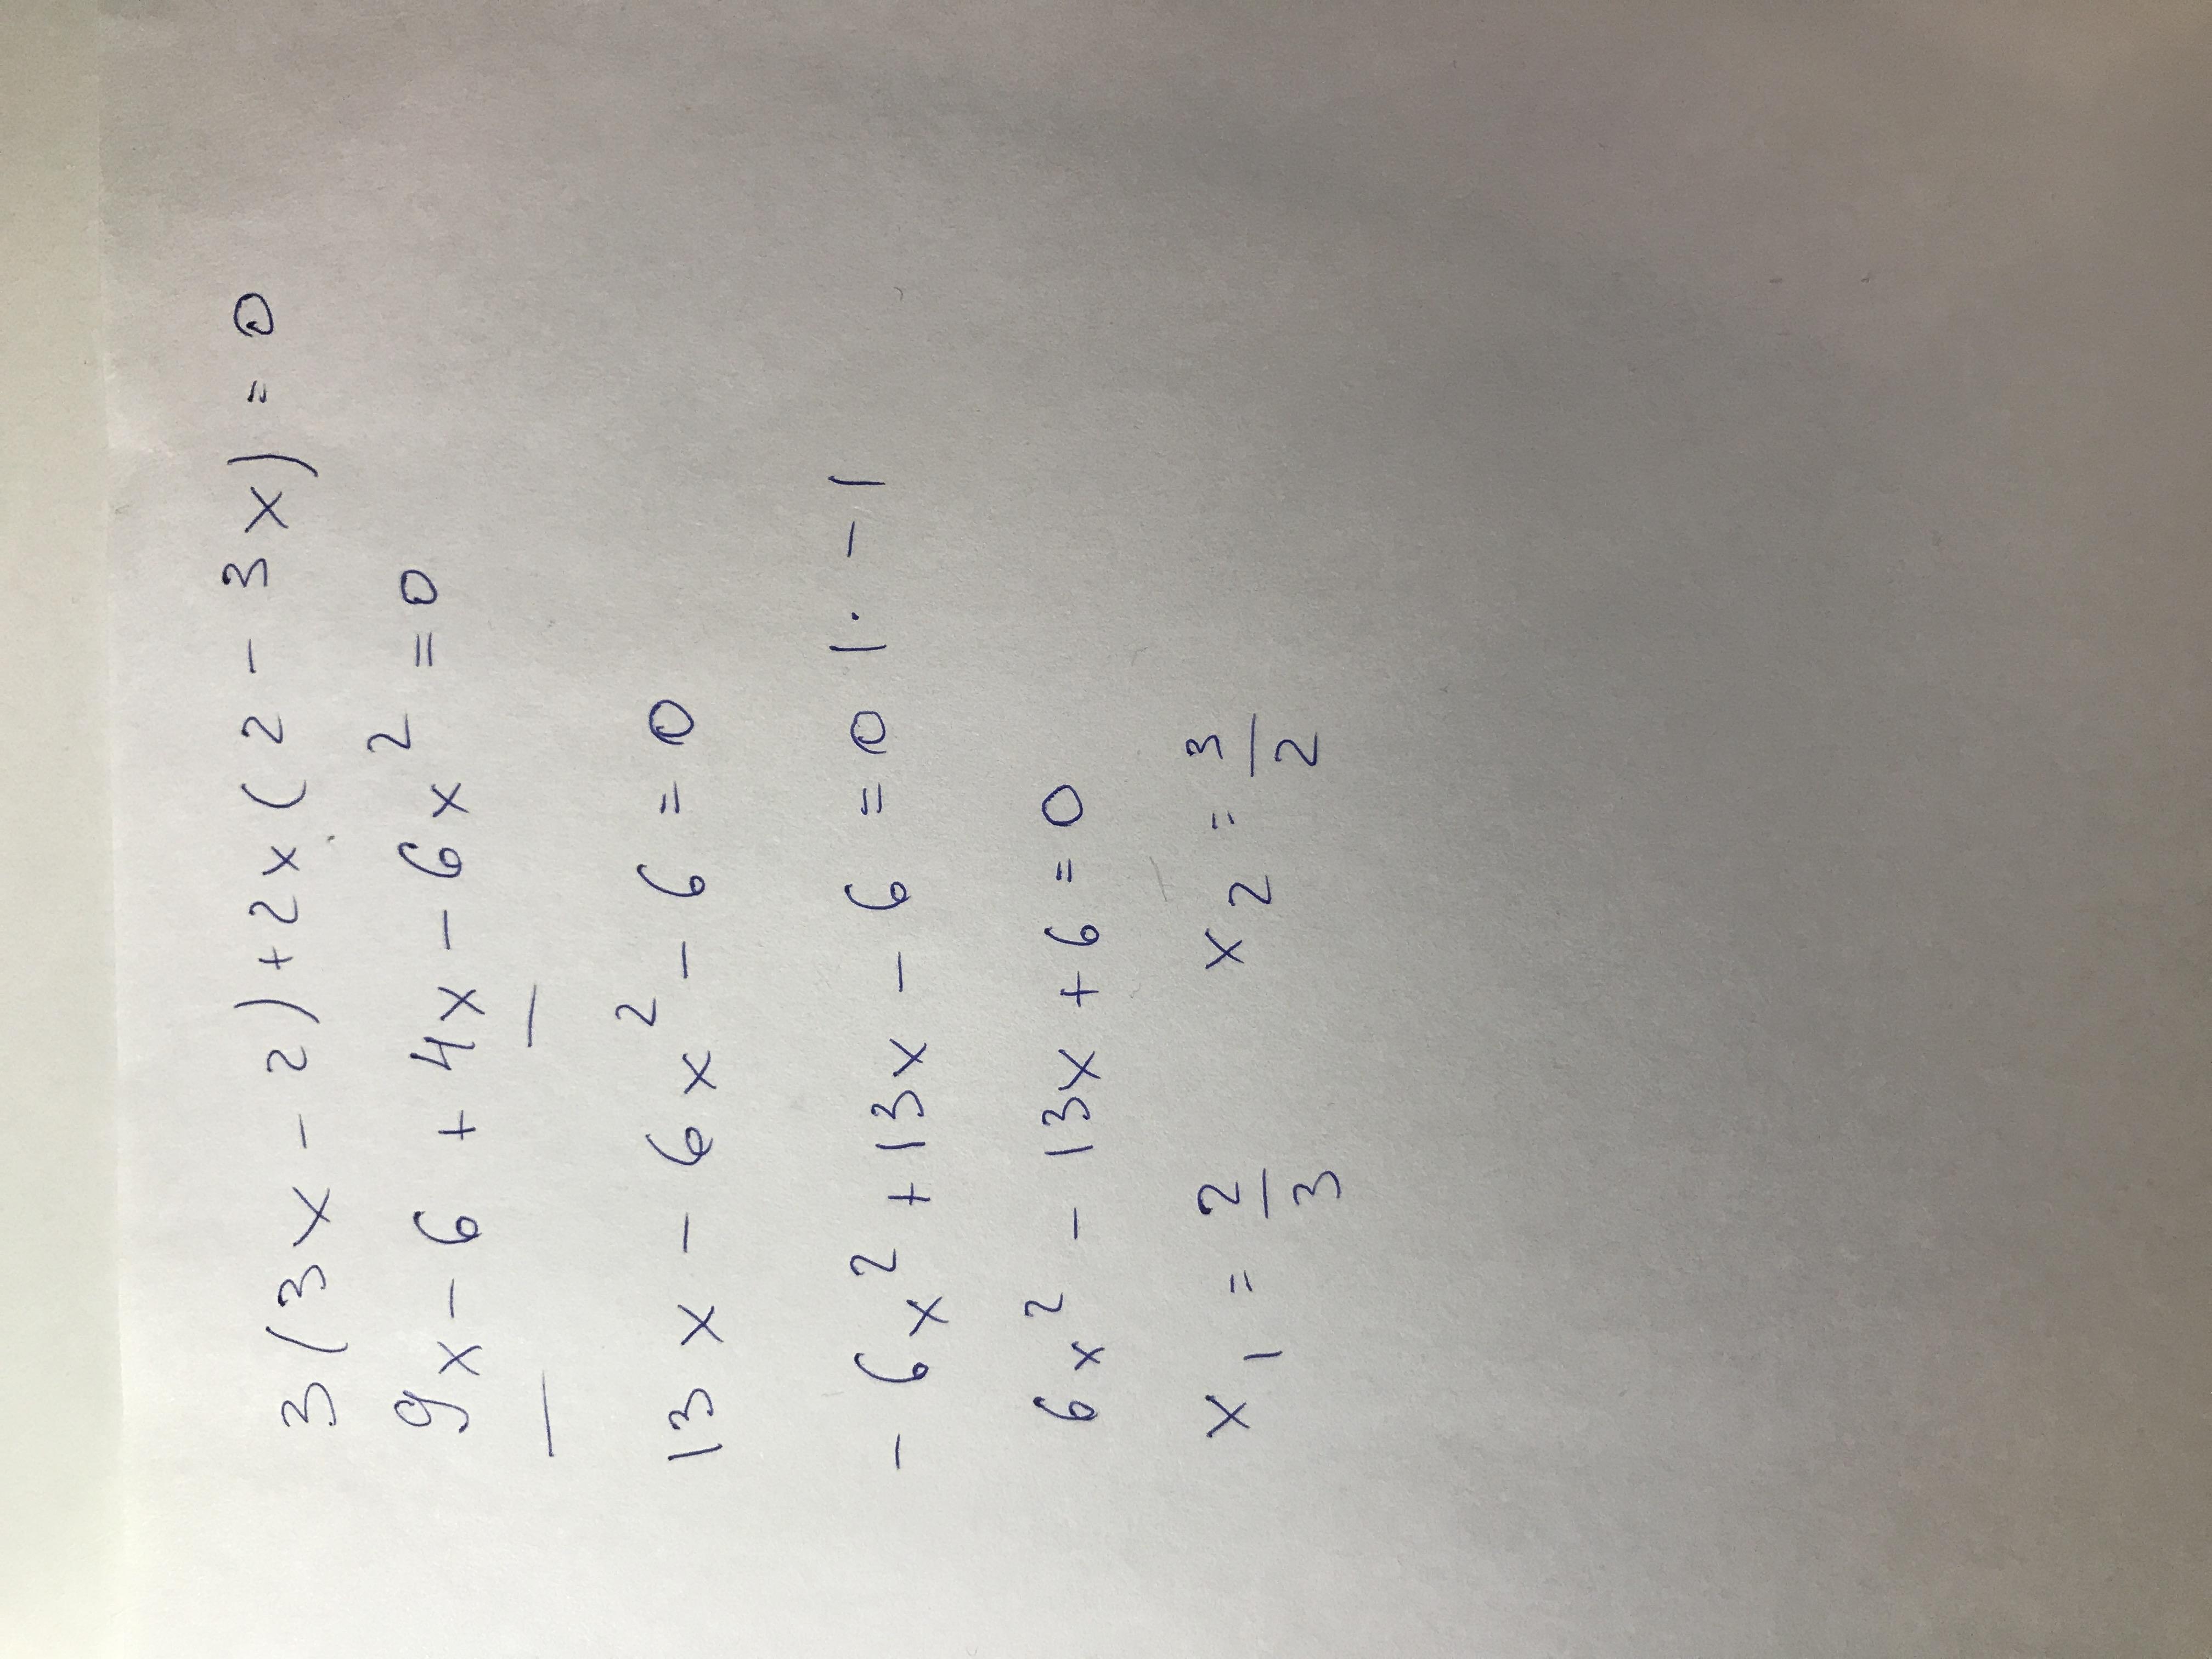 3(3x-2)+2x(2-3x)=0
9x-6+4x-6x²=0
13x-6x²-6=0
-6x²+13x-6=0 |·-1
6x²-13x+6=0
x₁=2/3 x₂=3/2